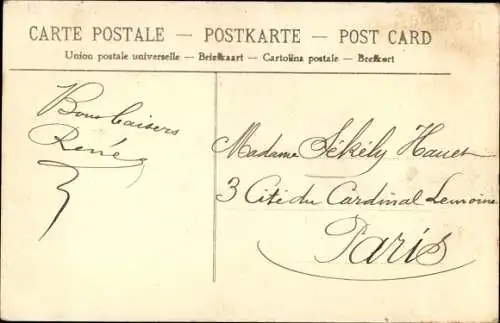 CARTE POSTALE — POSTKARTE — POST CARD
Union postale universelle — Briefkaart — Cartolina postale — Brefkort
Bons baisers
René
Madame Sékély Hauet
3 Cité du Cardinal Lemoine
Paris